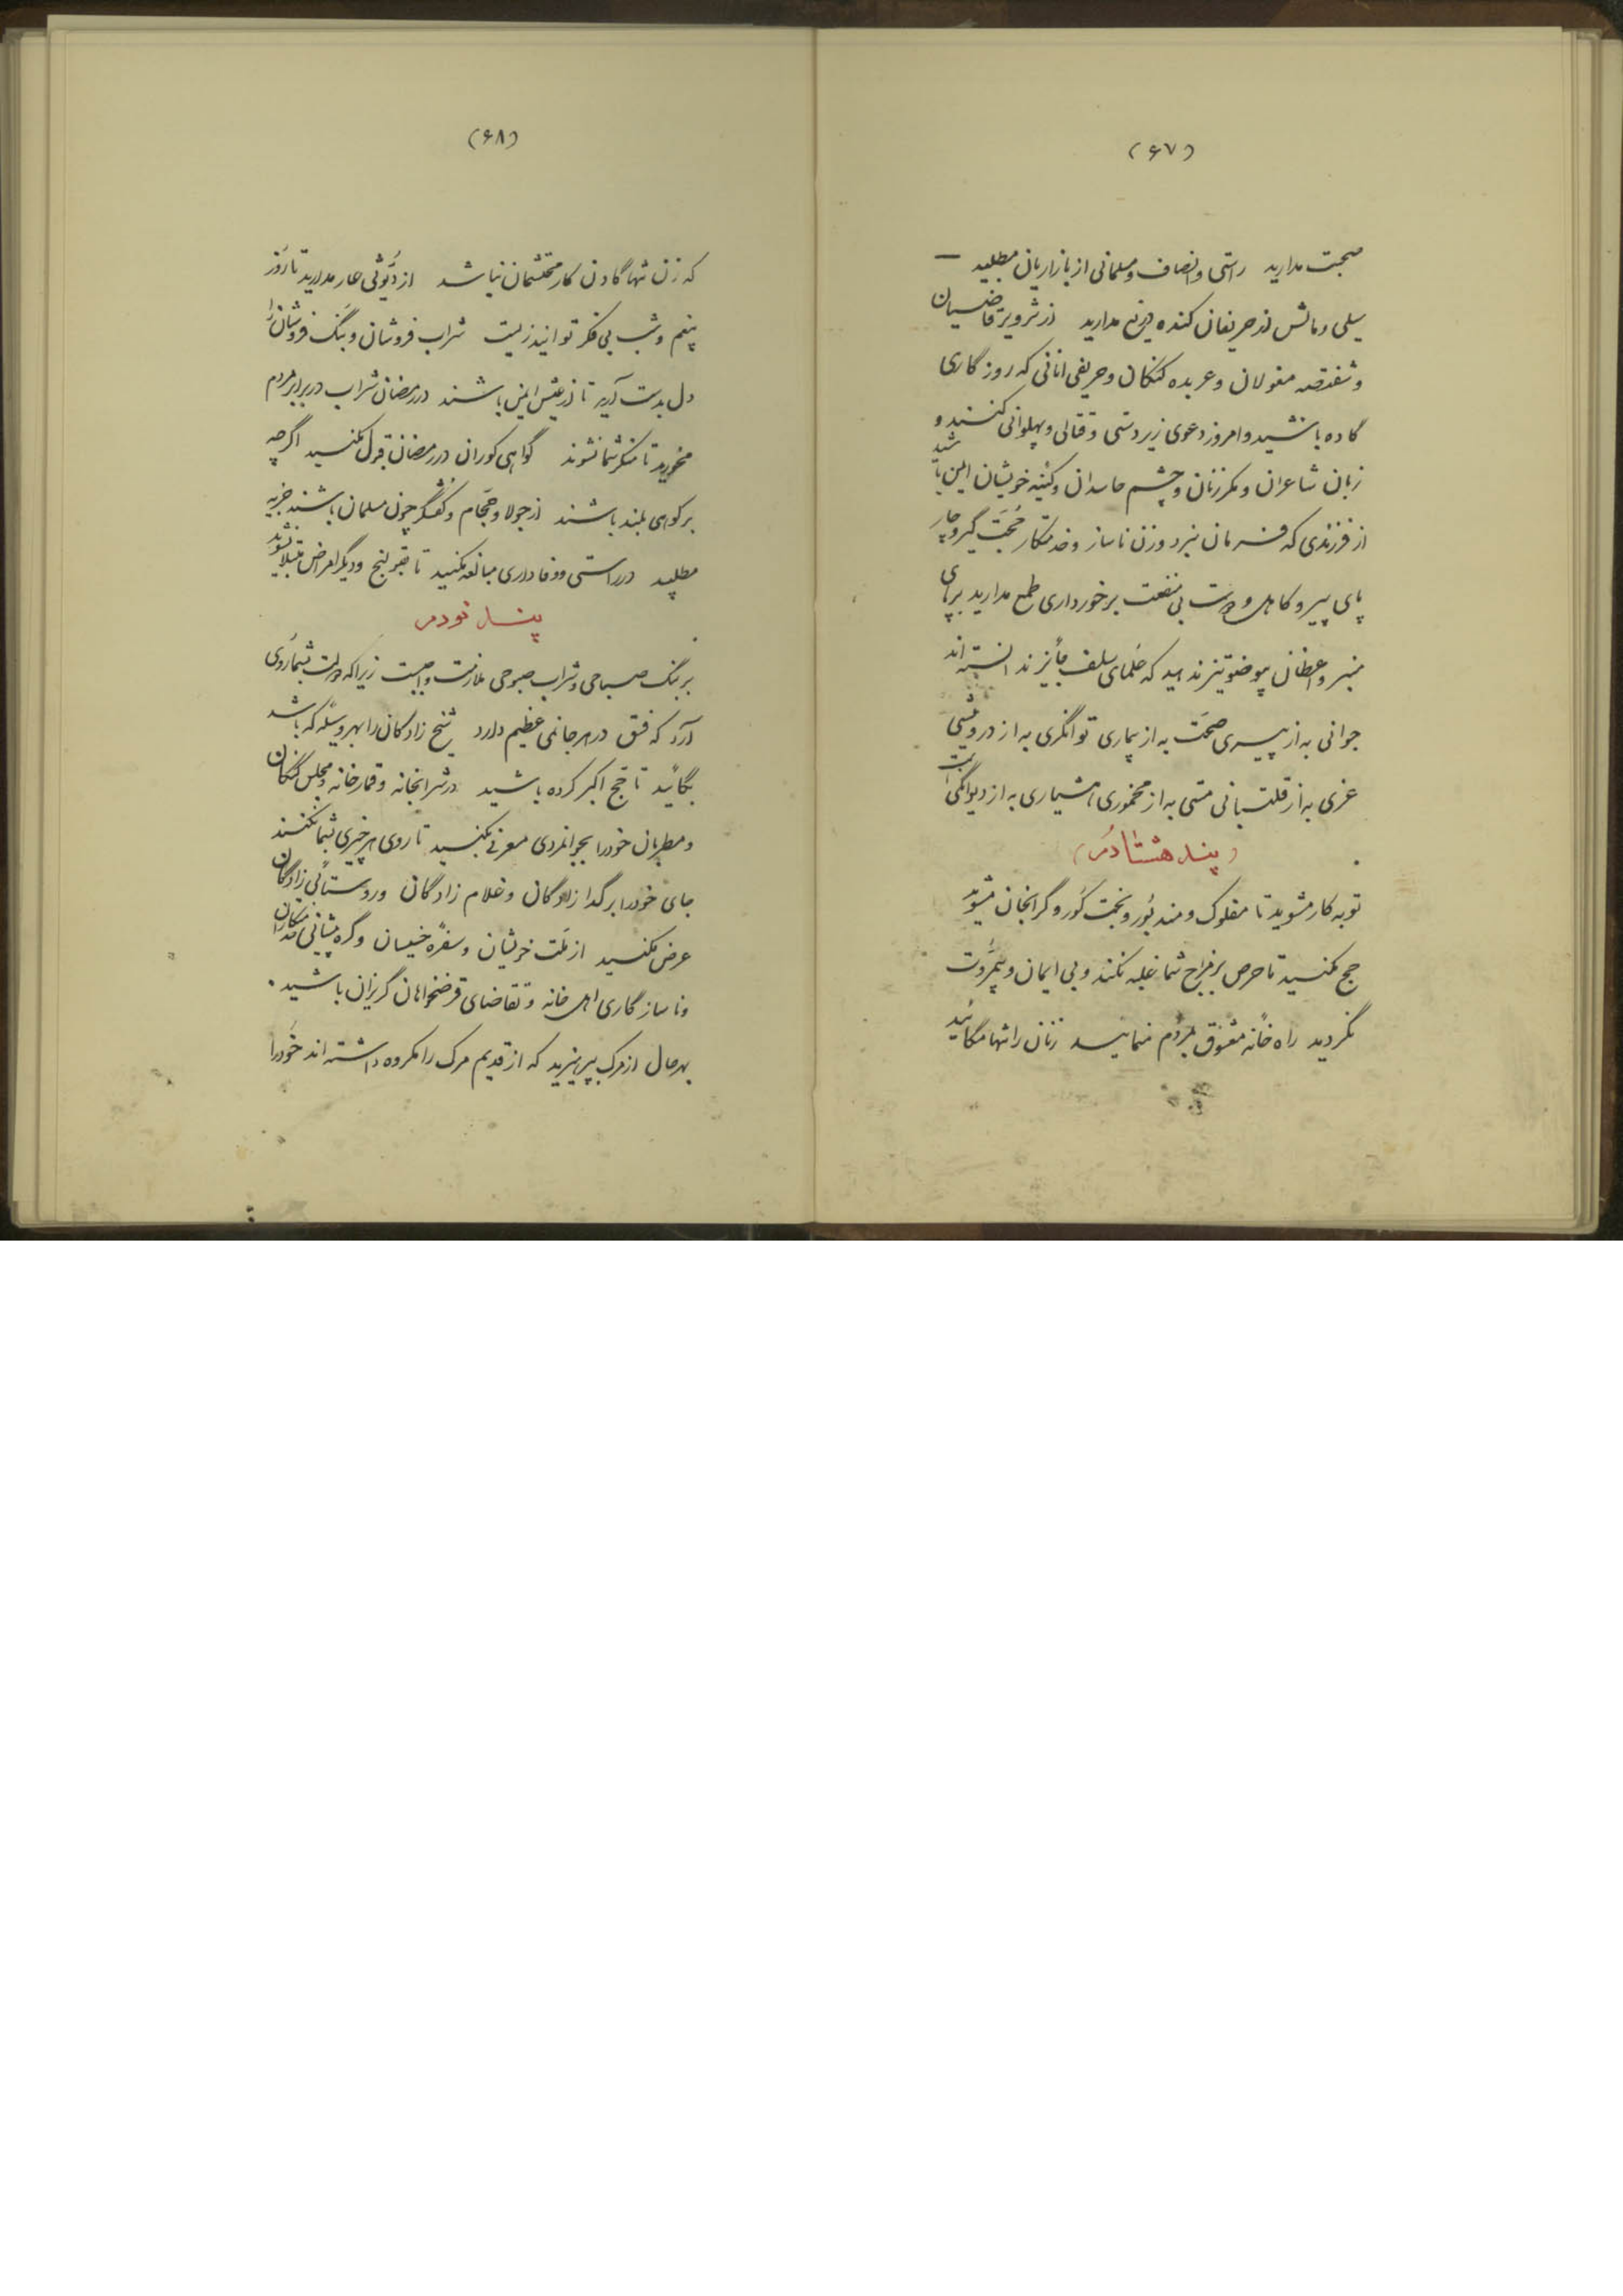 (۶۷)
صحبت مدارید راستی و انصاف و مسلمانی از بازاریان مطلبید —
سیلی و مالش از حریفان کنده دریغ مدارید از شر و تزویر قاضیان
و شفتقصه مغولان و عربده کنگان و حریفی انانی که روزگاری
گاده باشید و امروز دعوی زبردستی و قتالی و پهلوانی کنند و
زبان شاعران و مکر زنان و چشم حاسدان و کینه خویشان ایمن باشید
از فرزندی که فرمان نبرد و زن ناساز و خدمتکار حجت گیر و چار
پای پیر و کاهل و دوست بی منفعت برخورداری طمع مدارید برپای
منبر واعظان بیوضو تیز ندهید که علمای سلف جایز ندانسته اند
جوانی به از پیری صحت به از بیماری توانگری به از درویشی
غری به از قلتبانی مستی به از مخموری هشیاری به از دیوانگی است
(پند هشتادم)
توبه کار مشوید تا مفلوک و مندبور و بخت کور و گرانجان مشوید
حج مکنید تا حرص بر مزاج شما غلبه نکند و بی ایمان و بیمروت
نگردید راه خانه معشوق بمردم منمایید زنان را تنها مگائید
(۶۸)
که زن تنها گادن کار محتشمان نباشد از دیوثی عار مدارید تا روز
بیغم و شب بی فکر توانید زیست شراب فروشان و بنگ فروشانرا
دل بدست آرید تا از عیش ایمن باشند در رمضان شراب در برابر مردم
مخورید تا منکر شما نشوند گواهی کوران در رمضان قبول مکنید اگرچه
بر کوهی بلند باشند از جولا و حجام و کفشگر چون مسلمان باشند جزیه
مطلبید در راستی و وفاداری مبالغه مکنید تا بقولنج و دیگر امراض مبتلا نشوید
پند نودم
بر بنگ صباحی و شراب صبوحی ملازمت واجبست زیرا که دولت بشما روی
آرد که فسق در هر جا یمنی عظیم دارد شیخ زادگان را بهر وسیله که باشد
بگائید تا حج اکبر کرده باشید در شرابخانه و قمارخانه و مجلس کنگان
و مطربان خود را بجوانمردی معرفی مکنید تا روی هر چیزی بشما نکنند
جای خود را بر گدا زادگان و غلام زادگان و روستائی زادگان
عرض مکنید از منت خویشان و سفره خسیسان و گره پیشانی خدمتکاران
و ناسازگاری اهل خانه و تقاضای قرضخواهان گریزان باشید.
بهرحال از مرگ بپرهیزید که از قدیم مرگ را مکروه داشته اند خود را